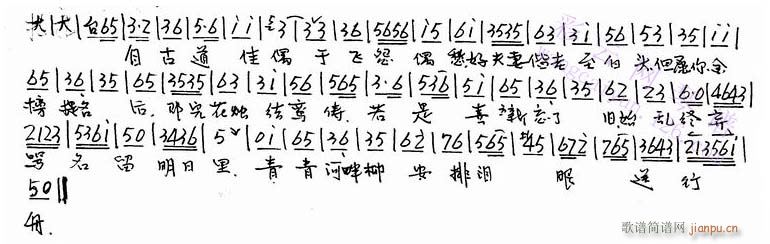 大|大|台65|3·2|36|5·6|i i|3 3|36|5656|i5|6i|3535|63|3i|56|53|35|i i|
自古道 佳偶 于飞 怨偶 愁好夫妻偕老 至白头但愿你金
65|36|35|65|3535|63|3i|56|565|3·6|536|5i|65|36|35|62|23|6·0|4643|
榜 提名 后, 那 花烛 结鸾俦. 若是 喜新忘了 旧始乱终弃
2123|536i|50|3436|5|0i|65|36|35|62|76|565|45|672|765|3643|21356i|
骂名留明日里, 青青河畔柳 安排泪 眼 送行
50‖
舟.
歌谱简谱网
jianpu.cn